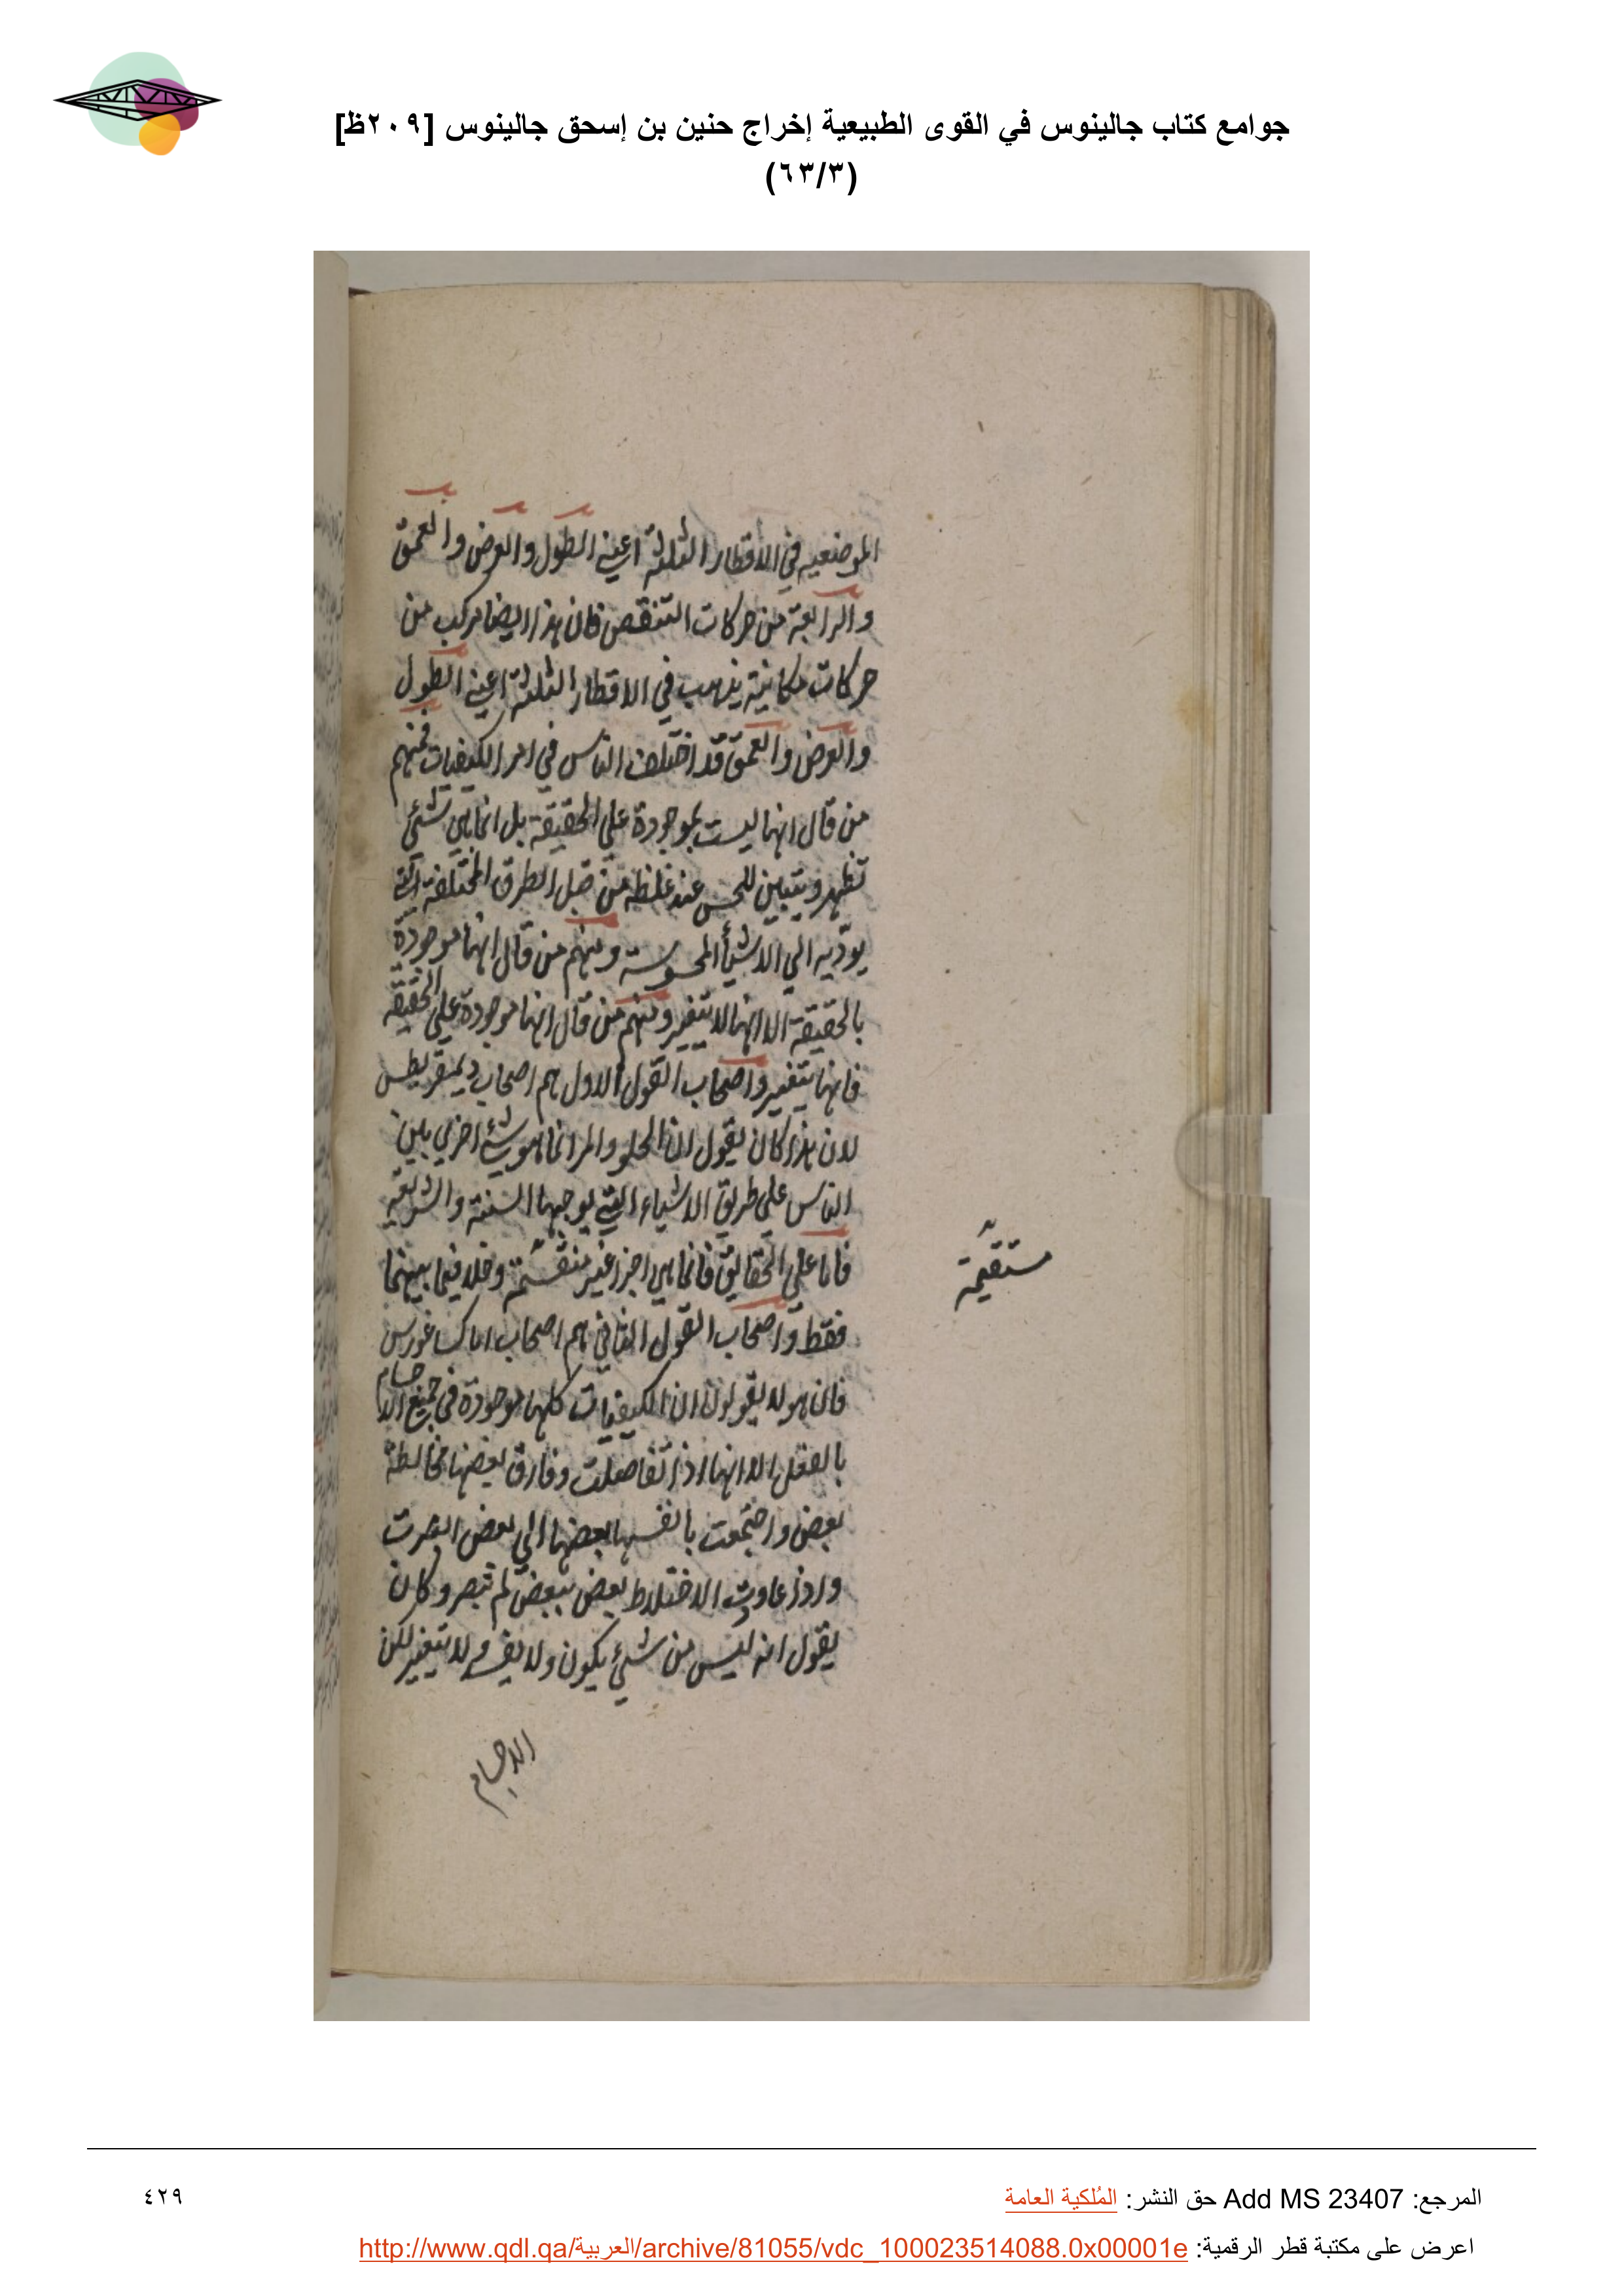 جوامع كتاب جالينوس في القوى الطبيعية إخراج حنين بن إسحق جالينوس [٢٠٩ظ]
(٦٣/٣)
الموضعيه في الاقطار الثلثة اعني الطول والعرض والعمق
والرابعة من حركات التنقص فان هذا ايضا مركب من
حركات مكانية يذهب في الاقطار الثلثة اعني الطول
والعرض والعمق قد اختلف الناس في امر الكيفيات فمنهم
من قال انها ليست بموجودة على الحقيقة بل انما هي شئ
تظهر ويتبين للحس عند غلظه من قبل الطرق المختلفة التي
يوديه الي الاشيأ المحسوسة ومنهم من قال انها موجودة
بالحقيقة الا انها لا يتغير ومنهم من قال انها موجودة على الحقيقة
فانها يتغير واصحاب القول الاول هم اصحاب ديمقريطس
لان هذا كان يقول ان الحلو والمر انما هو شئ اجري بين
الناس على طريق الاشياء التي يوجبها السنة والشريعة
فاما على الحقايق فانما هي اجزا غير منقسمة وخلا فيما بينهما
مستقيمة
فقط واصحاب القول الثاني هم اصحاب اناكساغورس
فان هولا يقولون ان الكيفيات كلها موجودة في جميع الاجسام
بالفعل الا انها اذا تفاصلت وفارق بعضها مخالطة
بعض واجتمعت بانفسها بعضها الي بعض ابصرت
واذا عاودت الاختلاط بعض ببعض لم تبصر وكان
يقول انه ليس من شئ يكون ولا يفسد ولا يتغير لكن
الاجسام
المرجع: Add MS 23407 حق النشر: المُلكية العامة
٤٢٩
اعرض على مكتبة قطر الرقمية: http://www.qdl.qa/العربية/archive/81055/vdc_100023514088.0x00001e